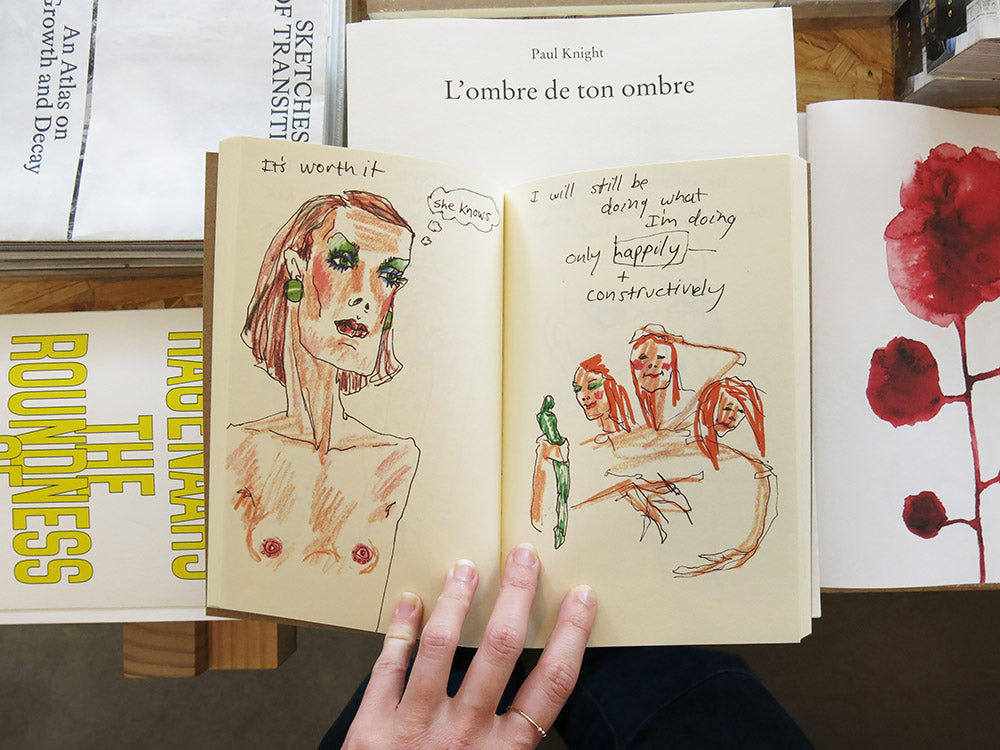 An Atlas on
Growth and Decay
SKETCHES
OF TRANSITI
Paul Knight
L'ombre de ton ombre
It's worth it
she knows
I will still be
doing what
I'm doing
only happily —
+
constructively
THE
ROUNDNESS